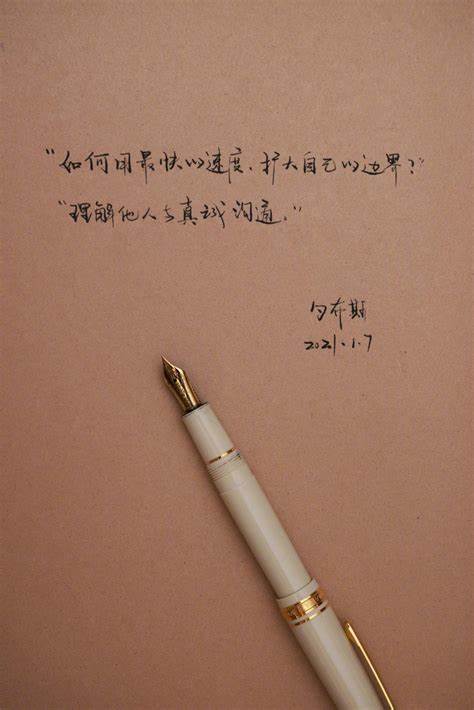 “如何用最快的速度，扩大自己的边界？”
“理解他人与真诚沟通。”
勺布斯
2021.1.7